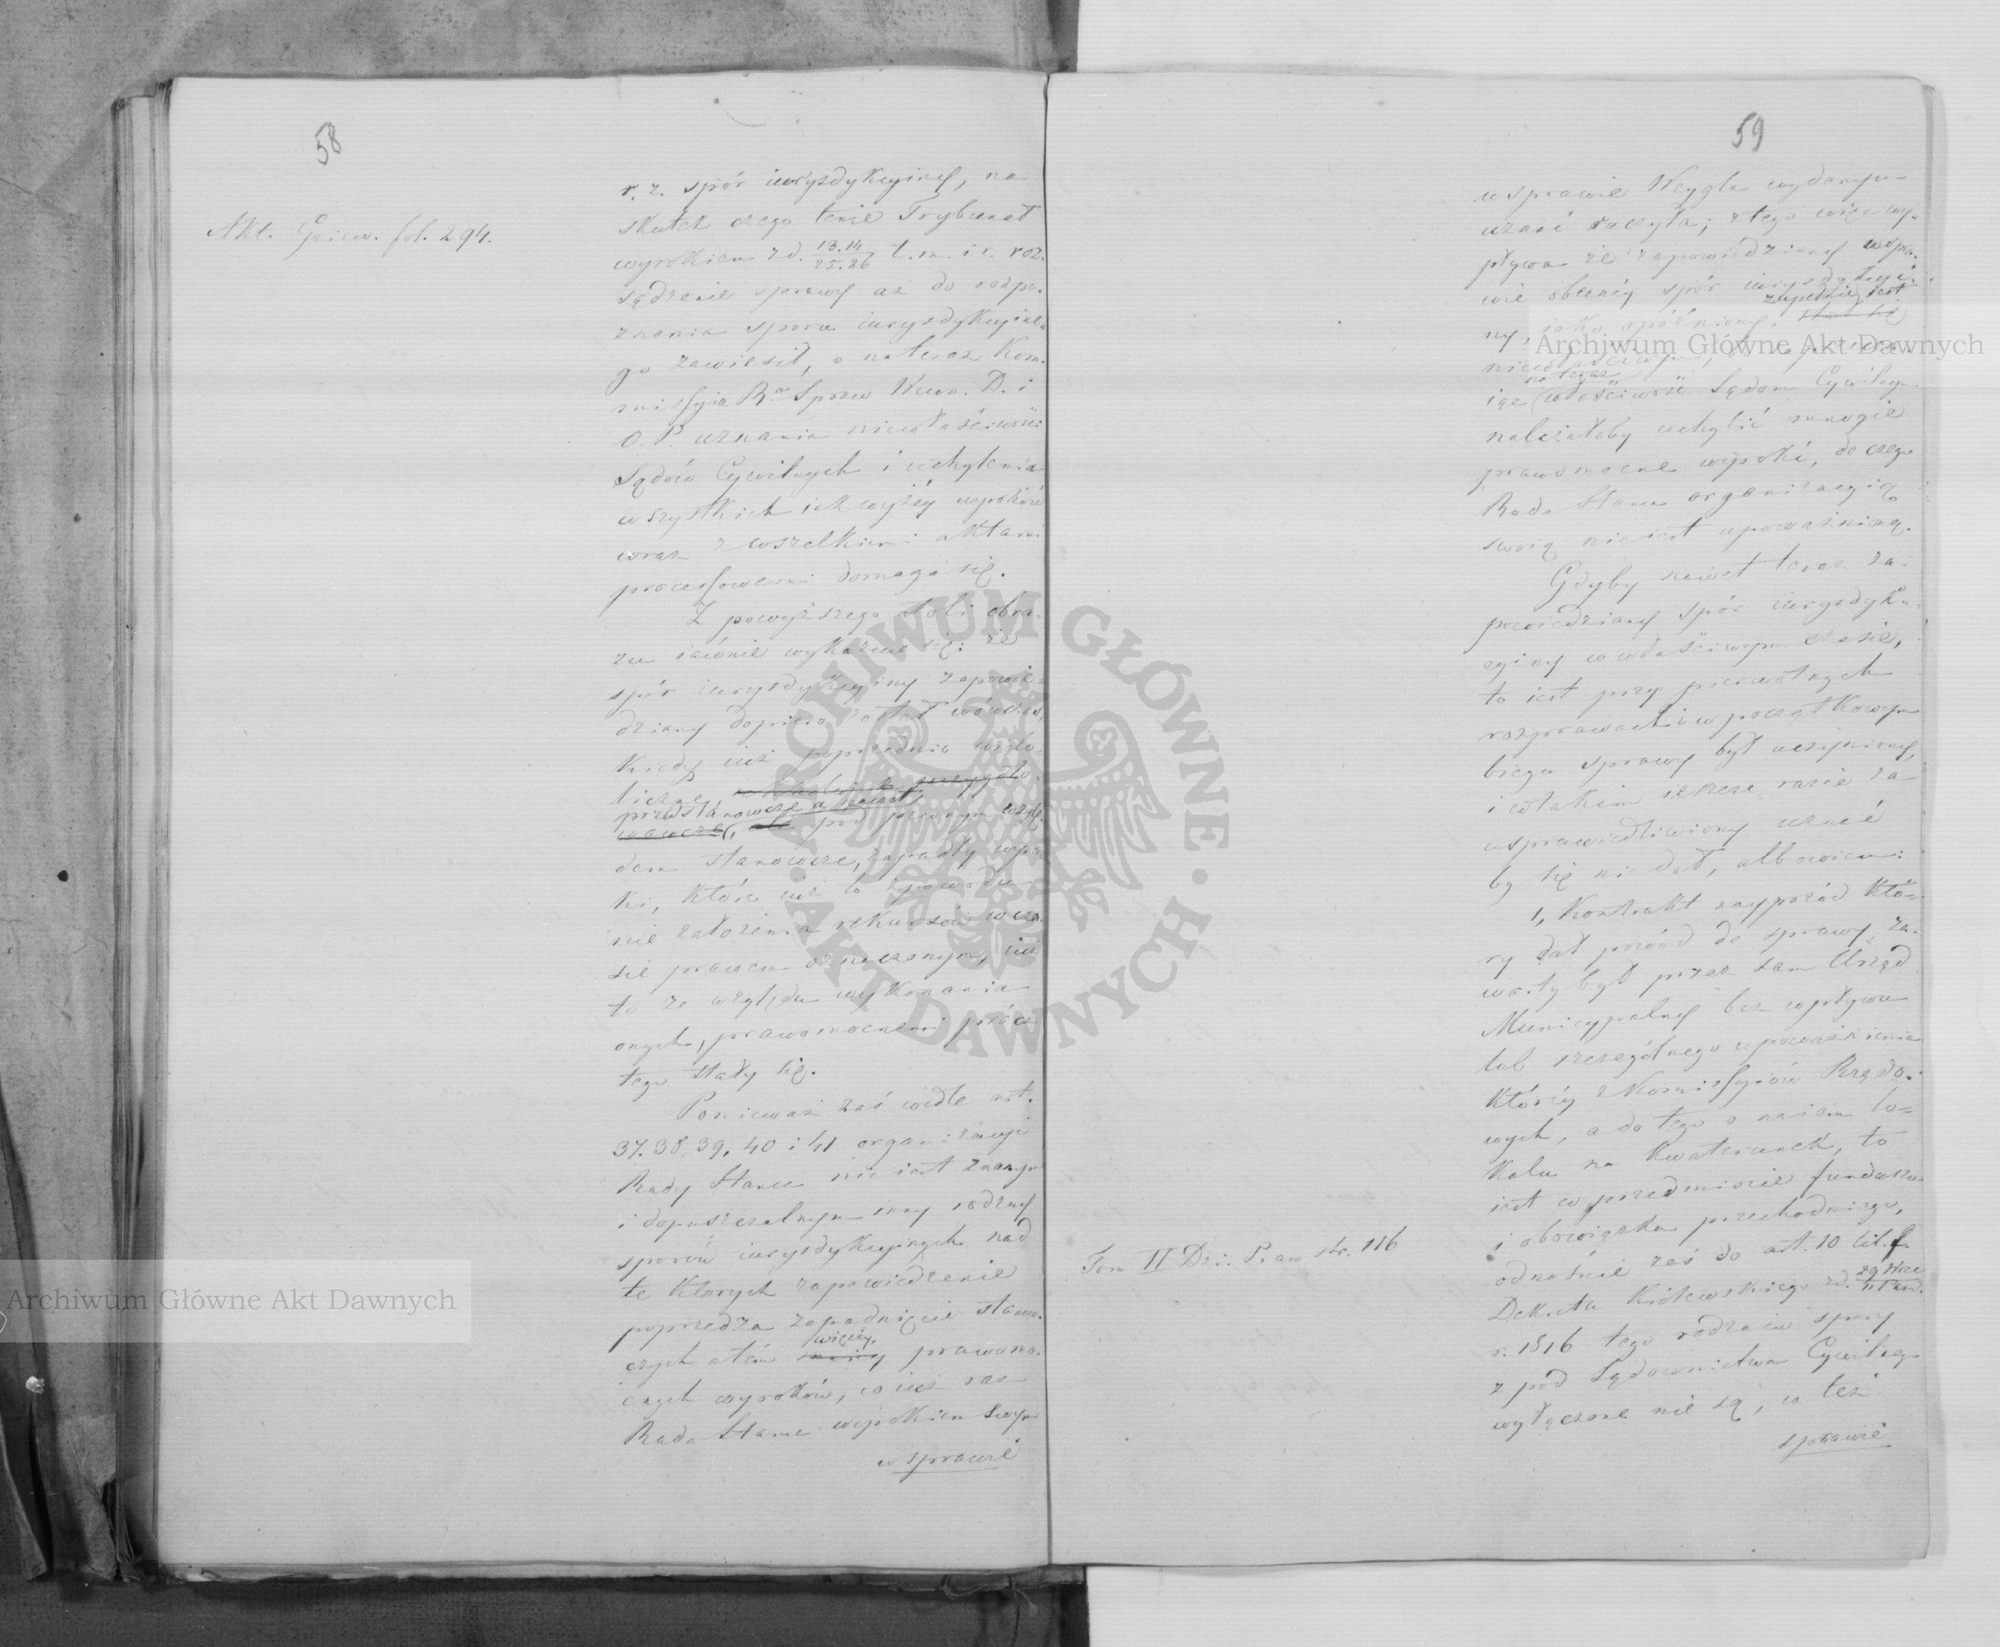 58
Akt. Gniew. fol. 294.
r. z. spór iurysdykcyiny, na
skutek czego tenże Trybunał
wyrokiem z d. 13.14/25.26 t. m. i r. roz-
sądzenie sprawy aż do rozpo-
znania sporu iurysdykcyine-
go zawiesił, a na teraz Kom-
missyia R. Spraw Wewn. D. i
O. P. uznania niewłaściwości
Sądów Cywilnych i uchylenia
wszystkich iak wyżéy wyroków
wraz z wszelkiemi aktami
processowemi domaga się.
Z powyższego obra-
zu iawnie wykazuie się: że
spór iurysdykcyiny zapowie-
dziany dopiero został wówczas,
kiedy iuż poprzednio wielo-
liczne
przedstanowcze a nawet
pod pewnym wzglę-
dem stanowcze, zapadły wyro-
ki, które iuż to z powodu
nie założenia rekursów w cza-
sie prawem oznaczonym, iuż
to ze względu wykonania
onych, prawomocnemi prócz
tego stały się.
Ponieważ zaś wedle art.
37. 38, 39, 40 i 41 organizacyi
Rady Stanu nie iest znanym
i dopuszczalnym inny rodzay
sporów iurysdykcyinych nad
te których zapowiedzenie
poprzedza zapadnięcie stanow-
więcéy
czych a tém prawomo-
cnych wyroków, co iuż raz
Rada Stanu wyrokiem swym
w sprawie
59
w sprawie Weygla wydanym
uznać raczyła; z tego więc wy-
pływa że zapowiedziany w spra-
wie obecnéy spór iurysdykcyi-
zupełnie iest
ny, iako spóźniony,
na teraz
iąc właściwość Sądom Cywilnym
należałoby uchylić mnogie
prawomocne wyroki, do czego
Rada Stanu organizacyią
swoią nie iest upoważnioną.
Gdyby nawet teraz za-
powiedziany spór iurysdyk-
cyiny w właściwym czasie,
to iest przy pierwotnych
rozprawach i w początkowym
biegu sprawy był uczyniony,
i w takim ieszcze razie za
usprawiedliwiony uznać
by się nie dał, albowiem:
1, Kontrakt naypzód któ-
ry dał powód do sprawy, za-
warty był przez sam Urząd
Municypalny bez wpływu
lub szczególnego upoważnienia
któréy z Kommissyiów Rządo-
wych, a do tego o naiem lo-
kalu na kwaterunek, to
iest w przedmiocie funduszu
i obowiązku przechodniego,
odnośnie zaś do art. 10 lit. f.
Dekretu Królewskiego z d. 29 Wrze
r. 1816 tego rodzaiu spory
z pod Sądownictwa Cywilnego
wyłączone nie są, co też
sprawie
Tom II Dzi. Praw str. 116
Archiwum Główne Akt Dawnych
Archiwum Główne Akt Dawnych
ARCHIWUM GŁÓWNE
AKT DAWNYCH